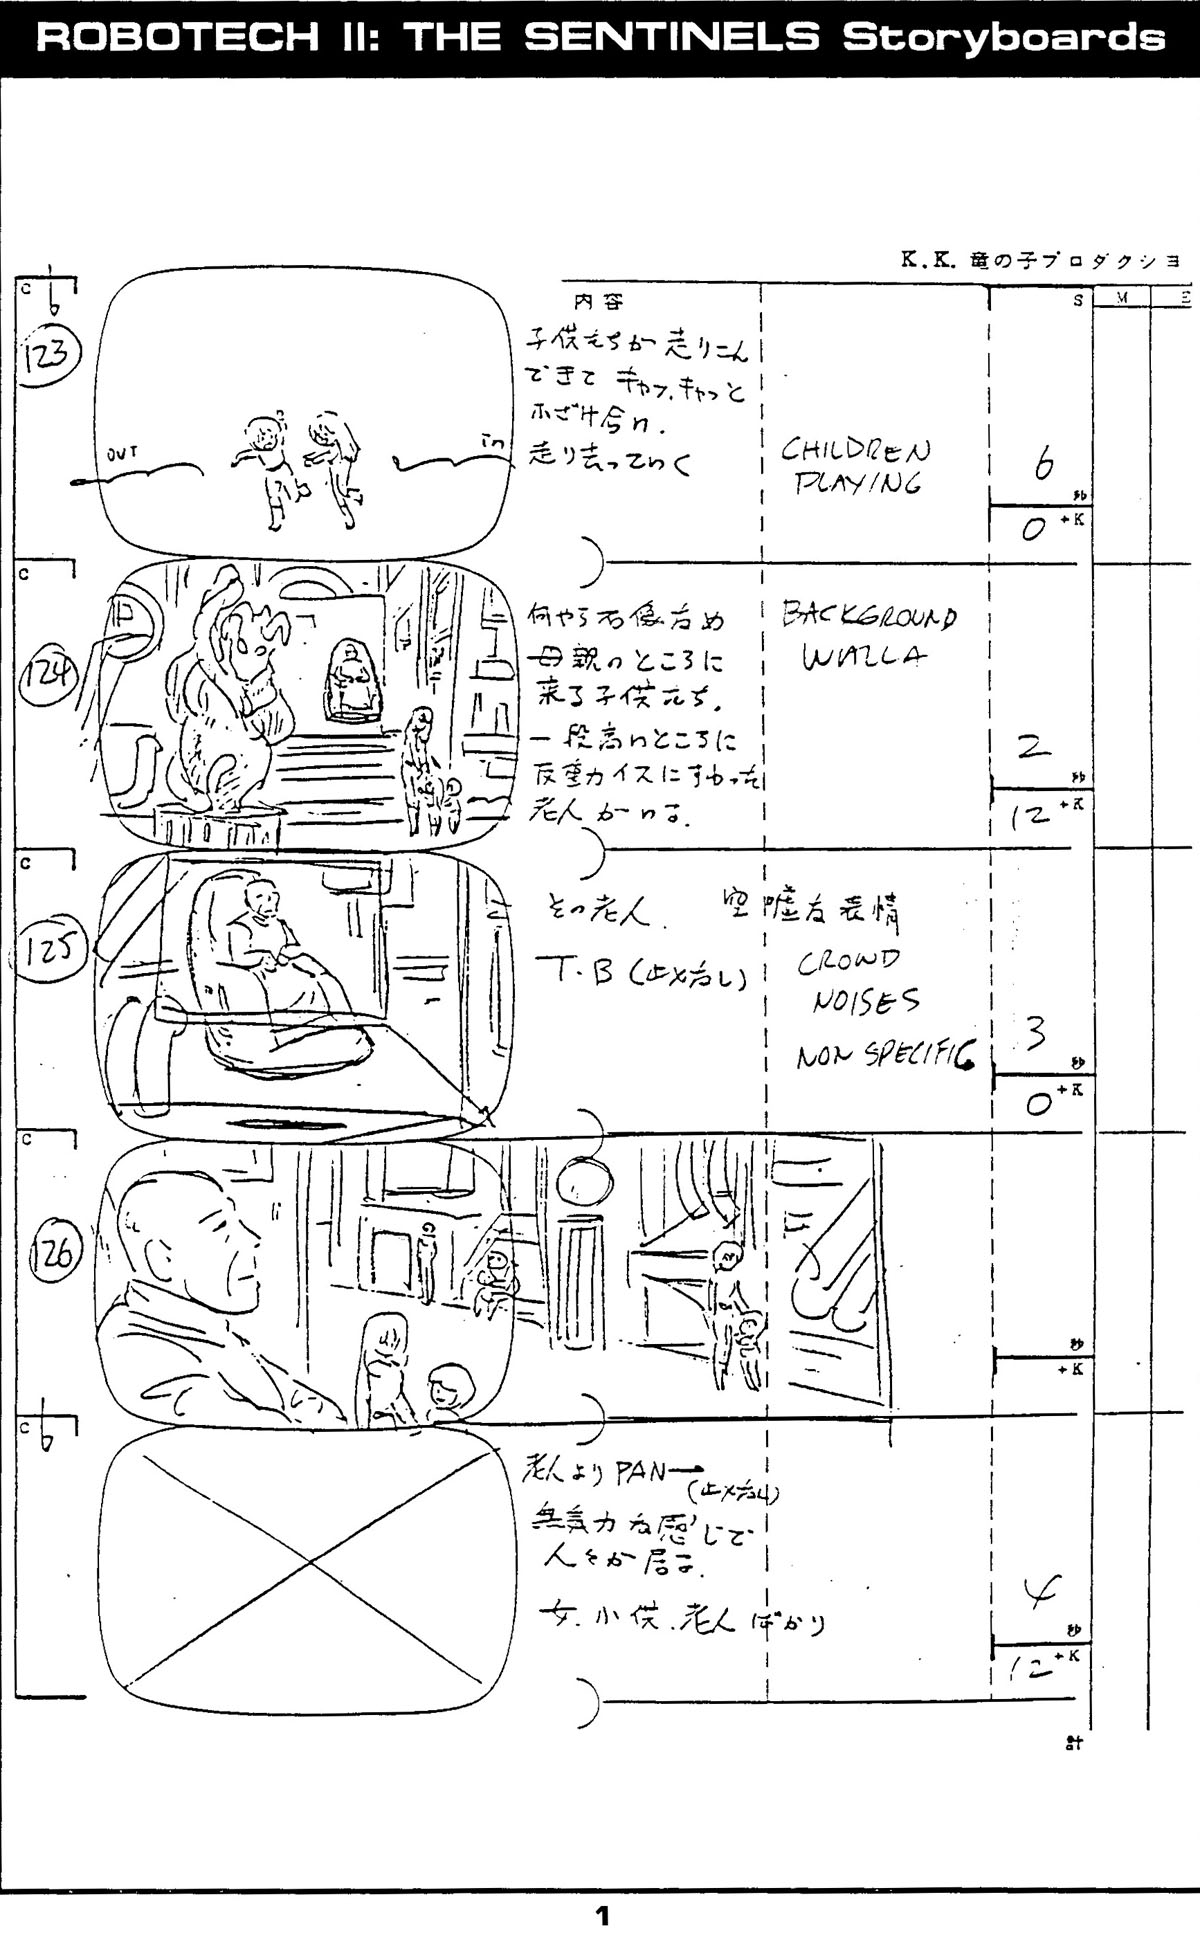 ROBOTECH II: THE SENTINELS Storyboards
K.K. 竜の子プロダクショ
C
b
内容
S
M
E
123
子供たちが走りこん
できて キャッ、キャッと
ふざけ合い、
走り去っていく
OUT
in
CHILDREN
PLAYING
6
秒
0 +K
C
124
何やら石像ため
母親のところに
来る子供たち。
一段高いところに
反重力イスにすわった
老人がいる。
BACKGROUND
WALLA
2
秒
12 +K
C
125
その老人、空嘘な表情
T・B (止メなし)
CROWD
NOISES
NON SPECIFIC
3
秒
0 +K
C
126
秒
+K
C
b
老人より PAN→
(止メなし)
無気力な感じで
人々が居る。
女、小供、老人ばかり
4
秒
12 +K
計
1